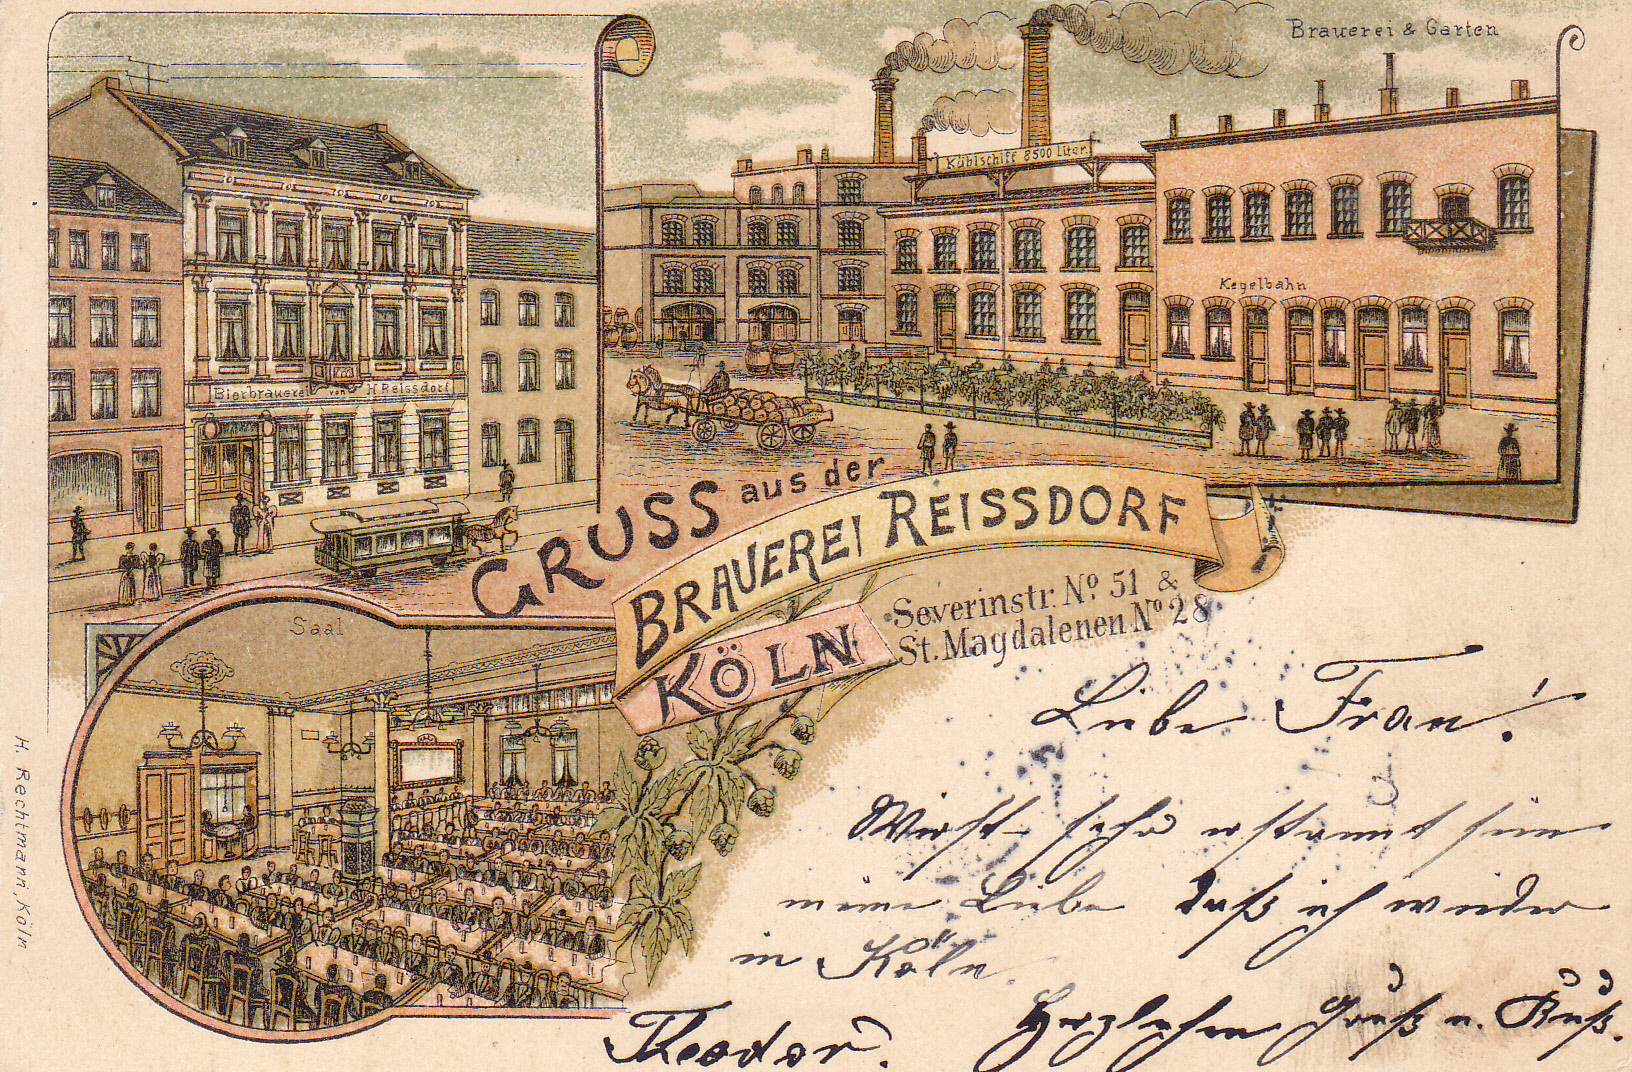 Brauerei & Garten
Kühlschiff 8500 Liter.
Kegelbahn
Bierbrauerei von H. Reissdorf
GRUSS aus der
BRAUEREI REISSDORF
KÖLN
Severinstr. Nº 51 &
St. Magdalenen Nº 28
Saal
H. Rechtmann, Köln
Liebe Frau!
Wirst sehr erstaunt sein
meine Liebe daß ich wieder
in Köln.
Herzlichen Gruß u. Kuß.
Theodor.